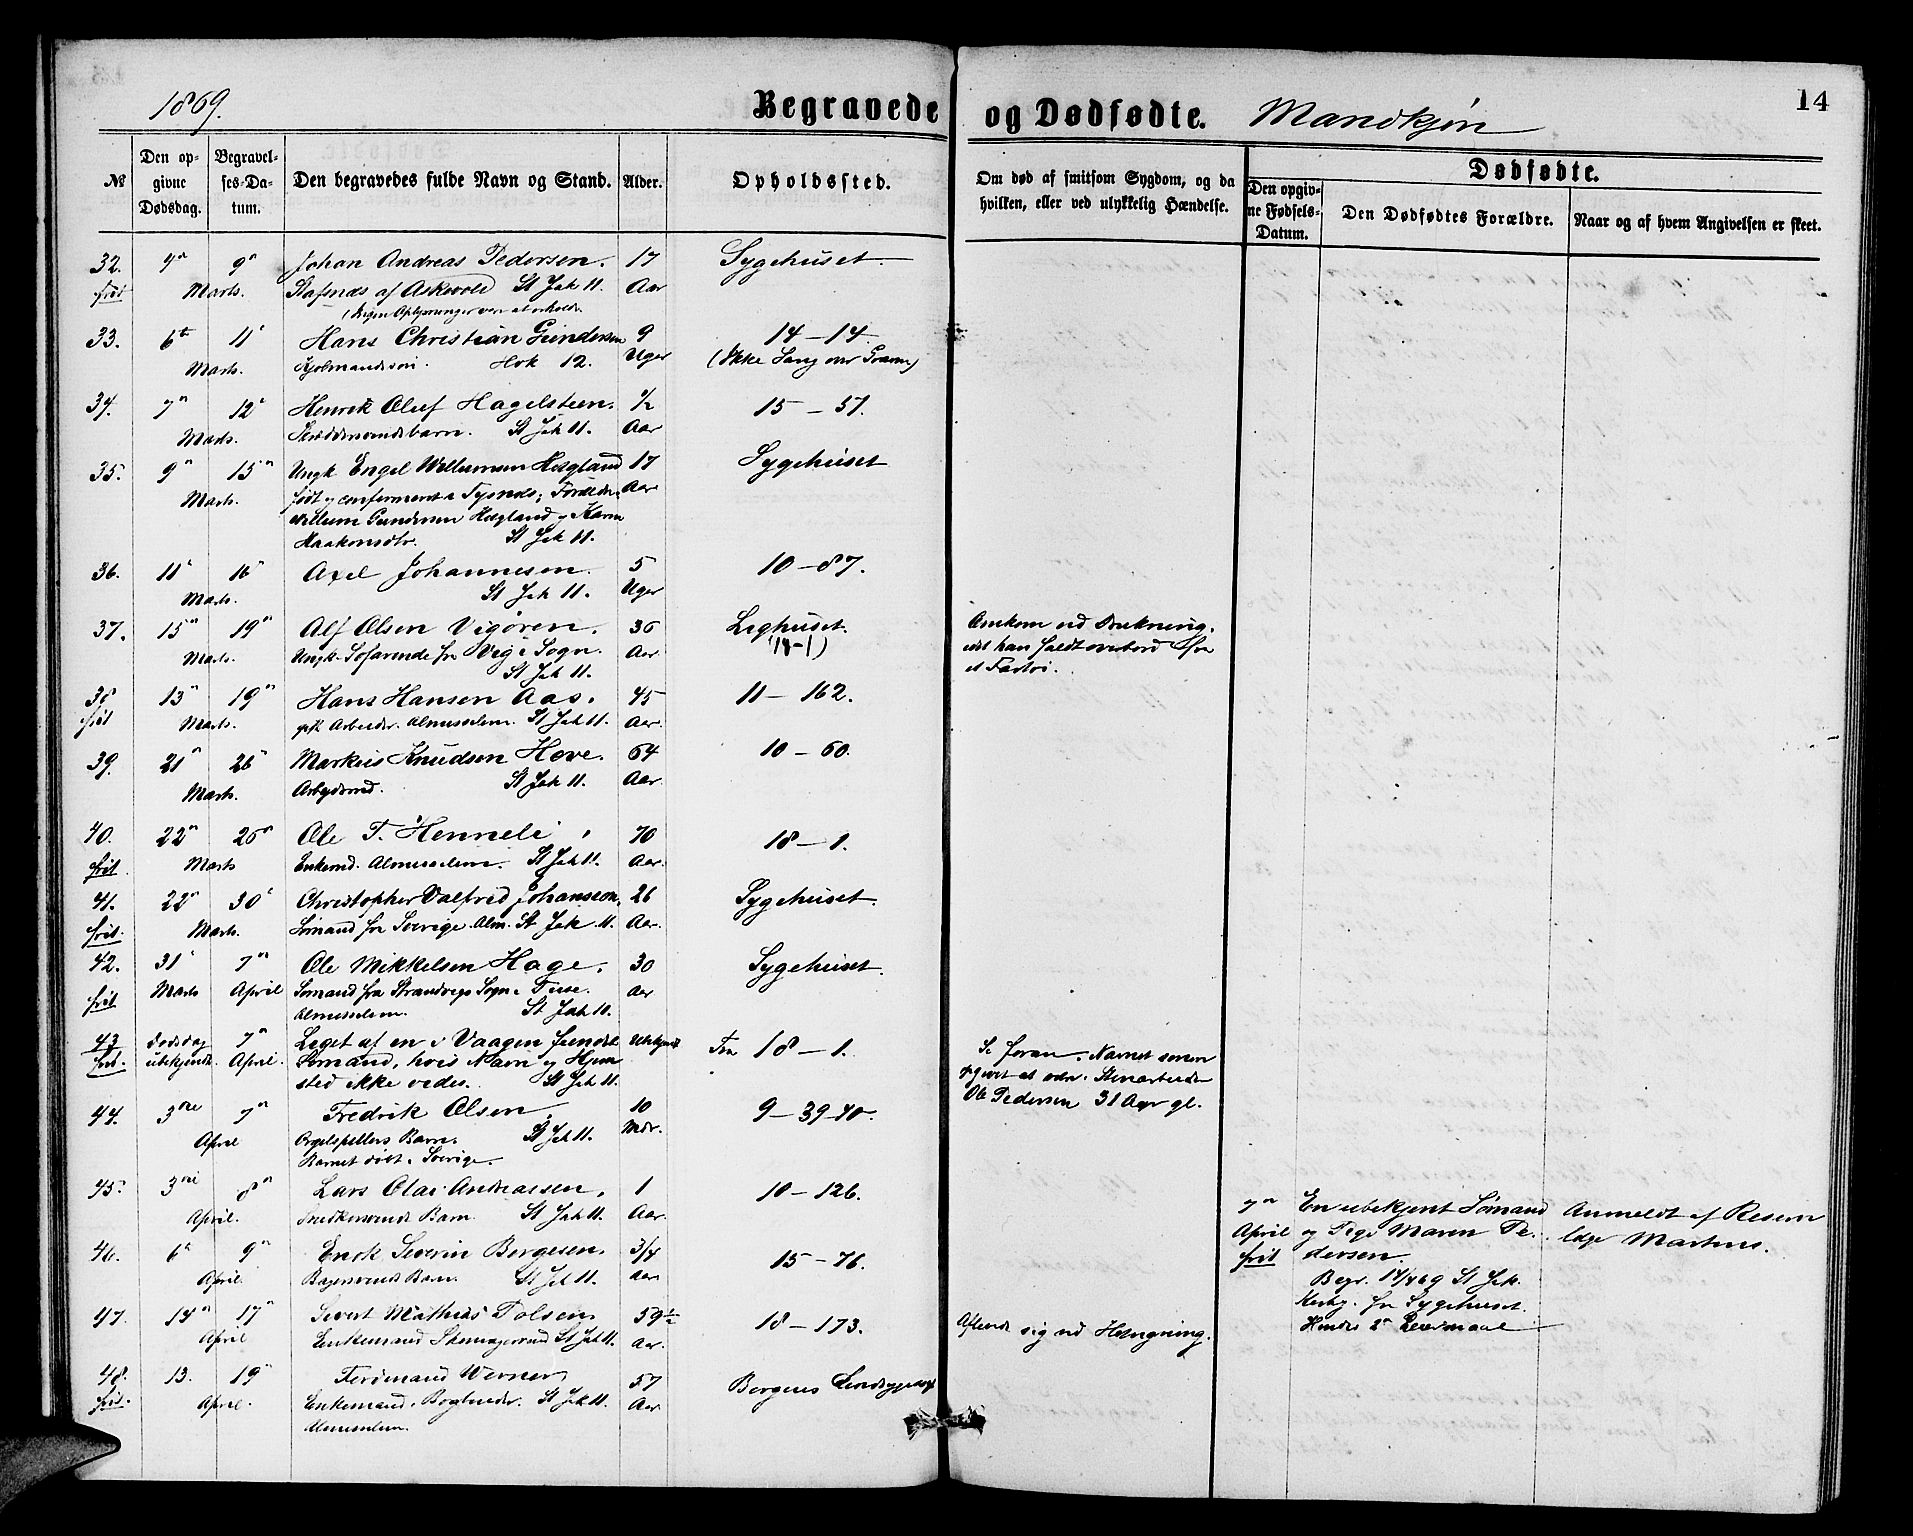 1869.
Begravede og Dødfødte. Mandkjøn
14
№
Den opgivne Dødsdag.
Begravelses-Datum.
Den begravedes fulde Navn og Stand.
Alder.
Opholdssted.
Om død af smitsom Sygdom, og da hvilken, eller ved ulykkelig Hændelse.
Dødfødte.
Den opgivne Fødsels-Datum.
Den Dødfødtes Forældre.
Naar og af hvem Angivelsen er skeet.
32. 7de 9de Johan Andreas Pedersen. 17 Sygehuset.
frit Marts. af Askevold St Jak 11. Aar
33. 6te 11 Hans Christian Gundersen 9 14-14.
Marts. Hok 12. Uger (Ikke Sang over Graven)
34. 7de 12 Henrik Oluf Hagelsteen. ½ 15-57.
Marts. St Jak 11. Aar
35. 9de 15de Ungk. Engel Willumsen Høgland 17 Sygehuset
Marts. født og confirmeret i Tysnæs; Forældre Aar
Willum Gundersen Høgland og Karen
Haakonsdtr. St Jak 11.
36. 11 16 Axel Johannesen. 5 10-87.
Marts. St Jak 11. Uger
37. 15de 19de Alf Olsen Vigøren. 36 Lighuset. Omkom ved Drukning,
Marts. Ungk. Søfarende fra Vig i Sogn. Aar (18-1) idet han faldt overbord fra
St Jak 11. et Fartøi.
38 13de 19de Hans Hansen Aas. 45 11-162.
frit Marts. gift Arbeider. Almisselem. St Jak 11. Aar.
39. 21de 26 Markus Knudsen Hove. 64 10-60.
Marts. St Jak 11. Aar.
40. 22de 26de Ole T. Henneli 70 18-1.
frit. Marts Enkemd. Almisselem. St Jak 11. Aar.
41. 22de 30 Christopher Valfrid Johansson. 26 Sygehuset.
frit. Marts. Sømand fra Sverige. Alm. St Jak 11. Aar.
42. 31 7de Ole Mikkelsen Hage. 30 Sygehuset.
frit Marts April Sømand fra Strandvigs Sogn i Fuse. Aar
Almisselem. St Jak 11.
43 Dødsdag 7de Liget af en i Vaagen funden Ubekjendt Fra 18-1. Se foran. Navnet senere
frit. ubekjendt. April. Sømand, hvis Navn og Hjemsted ikke vides. St Jak 11. opgivet at være Stenarbeider
Ole Pedersen 31 Aar gl.
44. 3die 7de Fredrik Olsen. 10 9-39-40.
April Orgelspillers Barn. St Jak 11. Mdr.
Barnet født i Sverige.
45. 3die 8de Lars Olai Andreassen. 1 10-126.
April. Snedkersvends Barn. St Jak 11. Aar.
46. 6te 9de Enok Severin Børgesen. 3/4 15-76.
April. Bagersvends Barn. St Jak 11. Aar
47. 14de 17de Sivert Mathias Polsen 59½ 18-173. Aflivede sig ved Hængning.
April Enkemand St Jak 11. Aar.
48. 13. 19de Ferdinand Werner 57 Bergens
frit. April. Enkemand. Bogbinder. St Jak 11. Aar
Almisselem.
7de En ubekjent Sømand Anmeldt af Reserve
April og Pige Maren Pedersen. læge Martens.
frit Begr. 14/4 69 St Jak.
Kirkeg. fra Sygehuset.
Hendes 2de Leiermaal